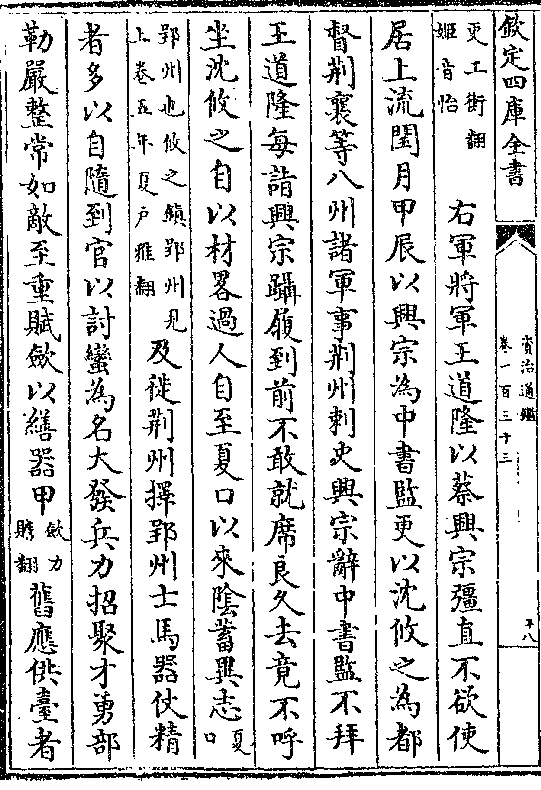 欽定四庫全書
資治通鑑
卷一百三十三
更工衡翻
姬音怡
右軍將軍王道隆以蔡興宗彊直不欲使
居上流閏月甲辰以興宗為中書監更以沈攸之為都
督荆襄等八州諸軍事荆州刺史興宗辭中書監不拜
王道隆每詣興宗躡履到前不敢就席良久去竟不呼
坐沈攸之自以材畧過人自至夏口以來陰蓄異志夏口
郢州也攸之鎮郢州見
上卷五年夏户雅翻
及徙荆州擇郢州士馬器仗精
者多以自隨到官以討蠻為名大發兵力招聚才勇部
勒嚴整常如敵至重賦斂以繕器甲
斂力
贍翻
舊應供臺者